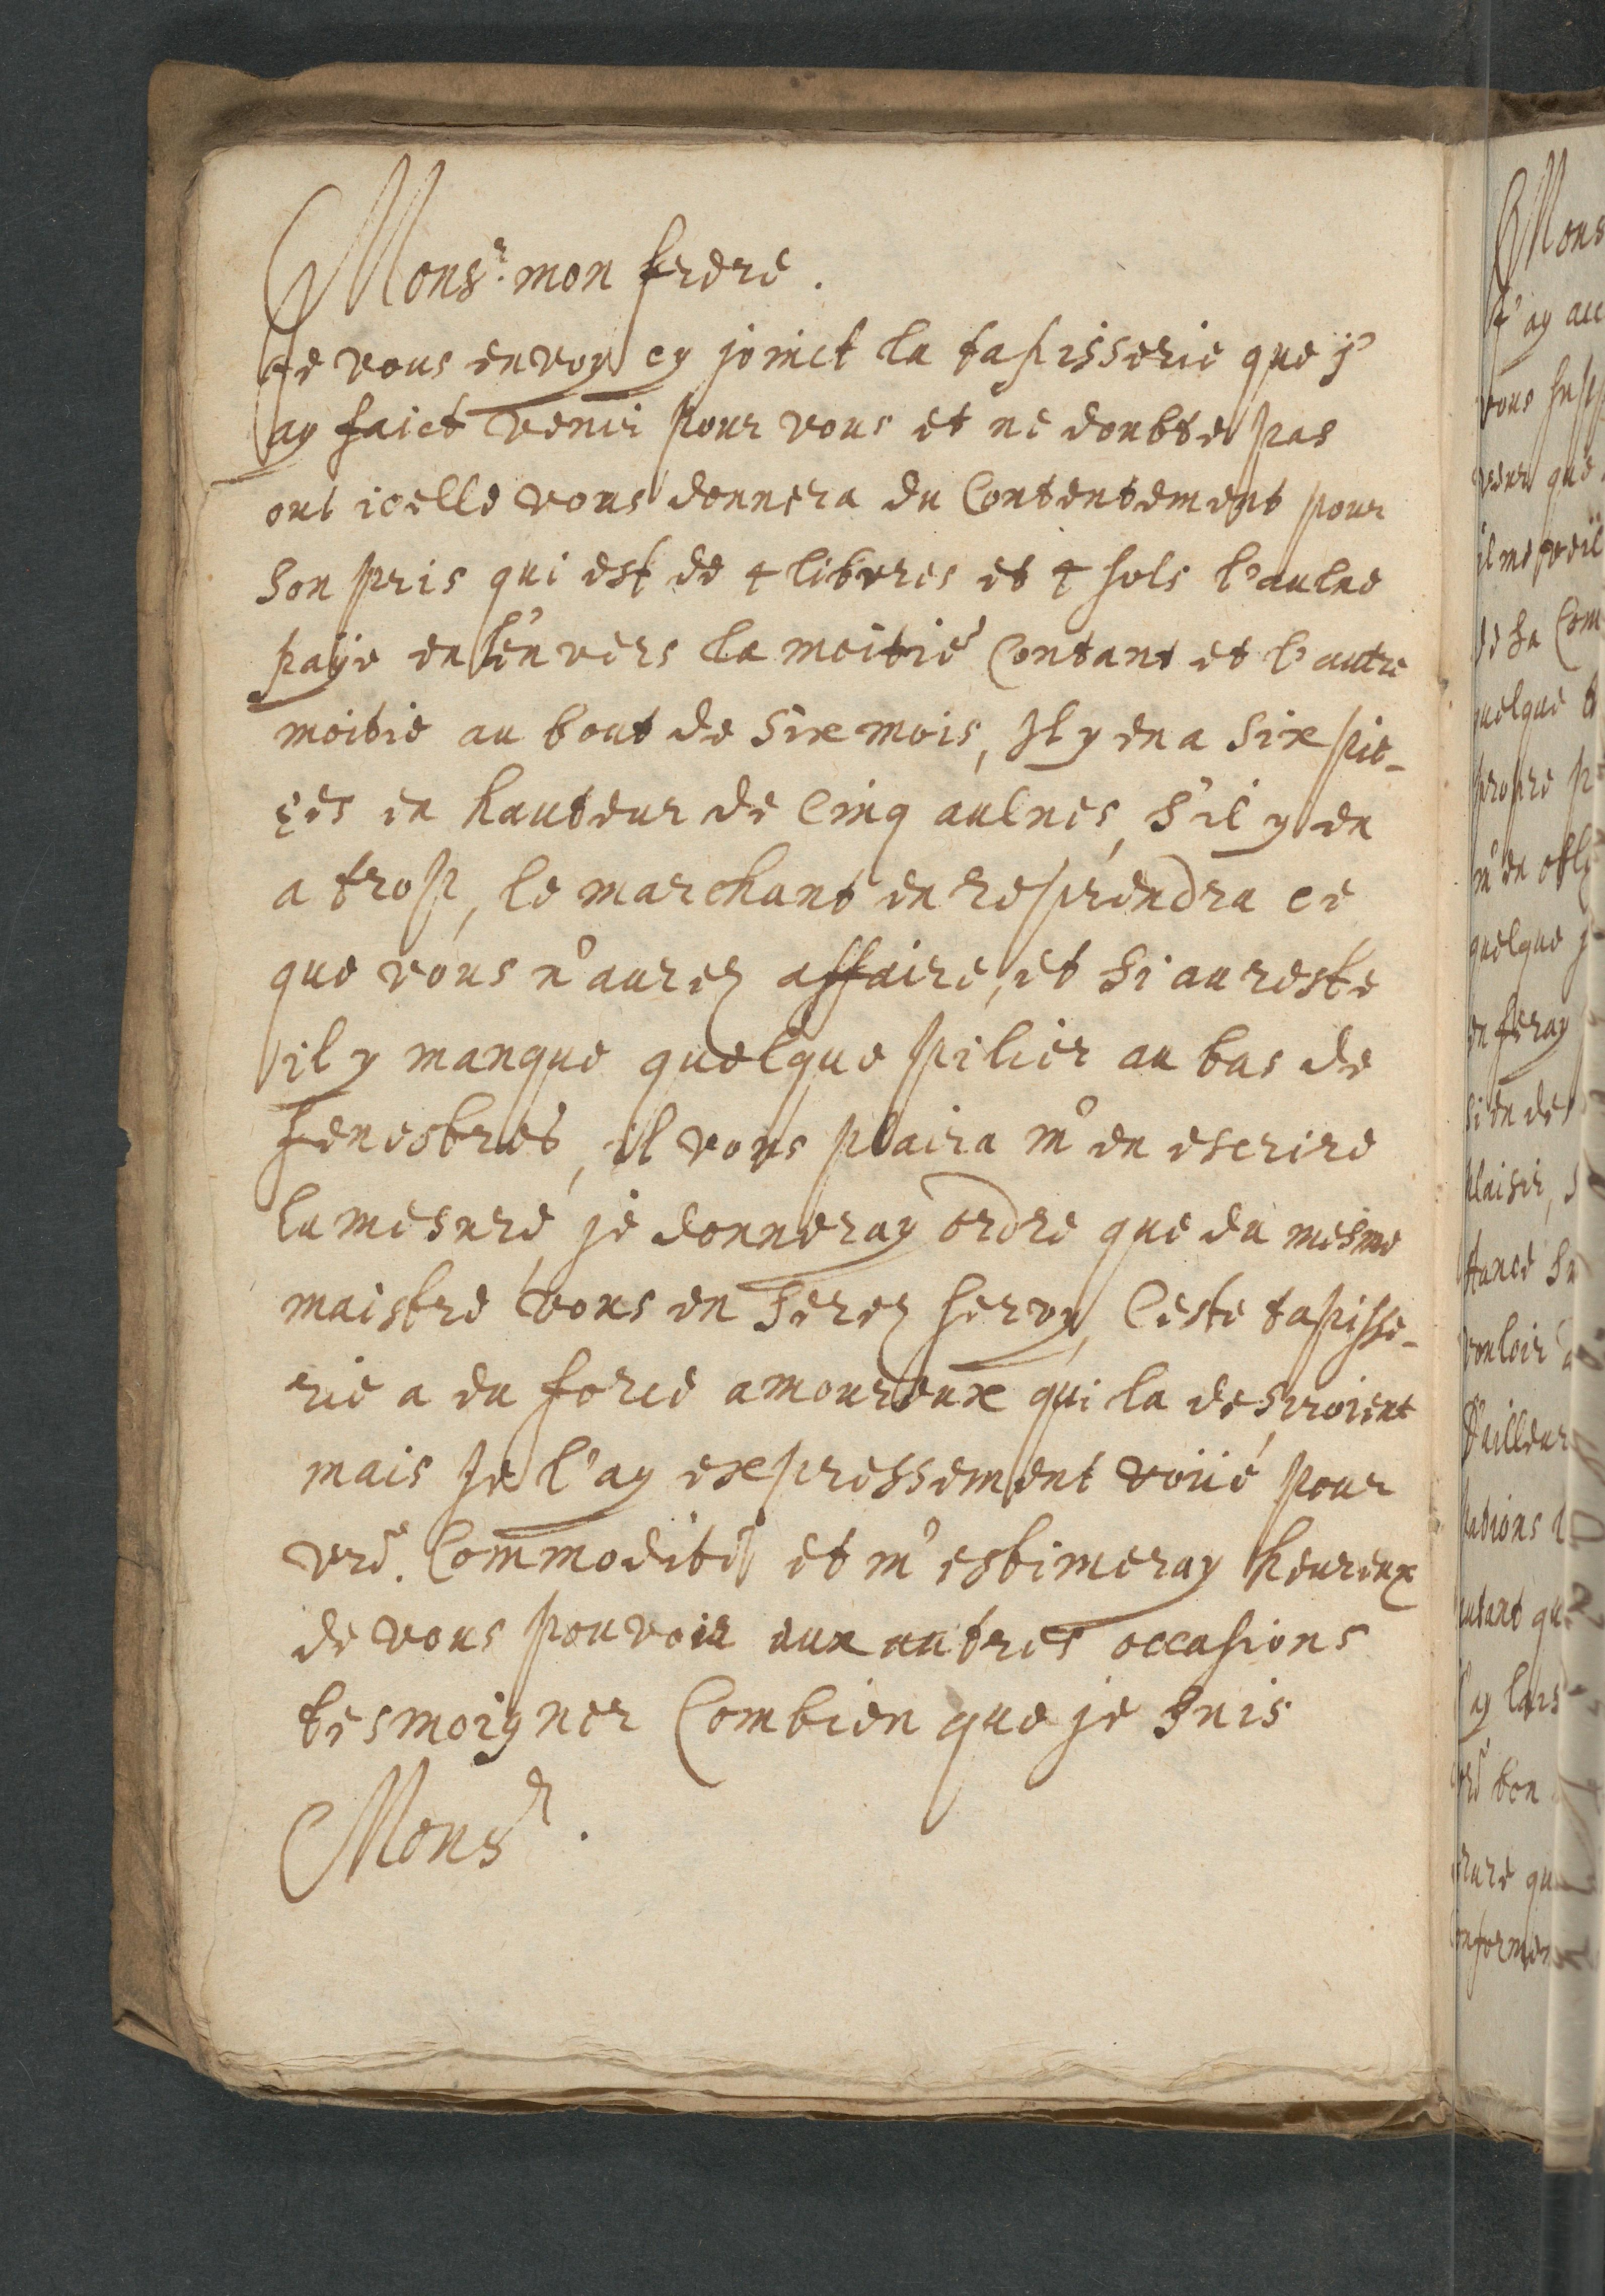 Monsr. mon frere.
Je vous envoy cy joinct la tapisserie que j'
ay faict venir pour vous et ne doubte pas
icelle vous donnera du Contentement pour
son pris qui est de 4 libvres et 4 sols l'aulne
payé en l'envers la moitié Contant et l'autre
moitie au bout de Six mois, Il y en a Six pie-
çes en hauteur de Cinq aulnes, S'il y en
a trop, le marchant en reprendra ce
que vous n'aurez affaire, et Si au reste
il y manque quelque pilier au bas de
fenestres, il vous plaira m'en escrire
la mesure, je donneray ordre que du mesme
maistre vous en Serez servy, Ceste tapisse-
rie a eu force amoureux qui la desiroient
mais Je l'ay expressement voüé pour
vre. Commodité et m'estimeray heureux
de vous pouvoir aux autres occasions
tesmoigner Combien que je Suis
Monsr.
Mons
J'ay
vous
que
il me
de sa Com
quelque
propre
m'en
quelque
en feray
si
plaisir,
vouloir
D'ailleur
bon
que